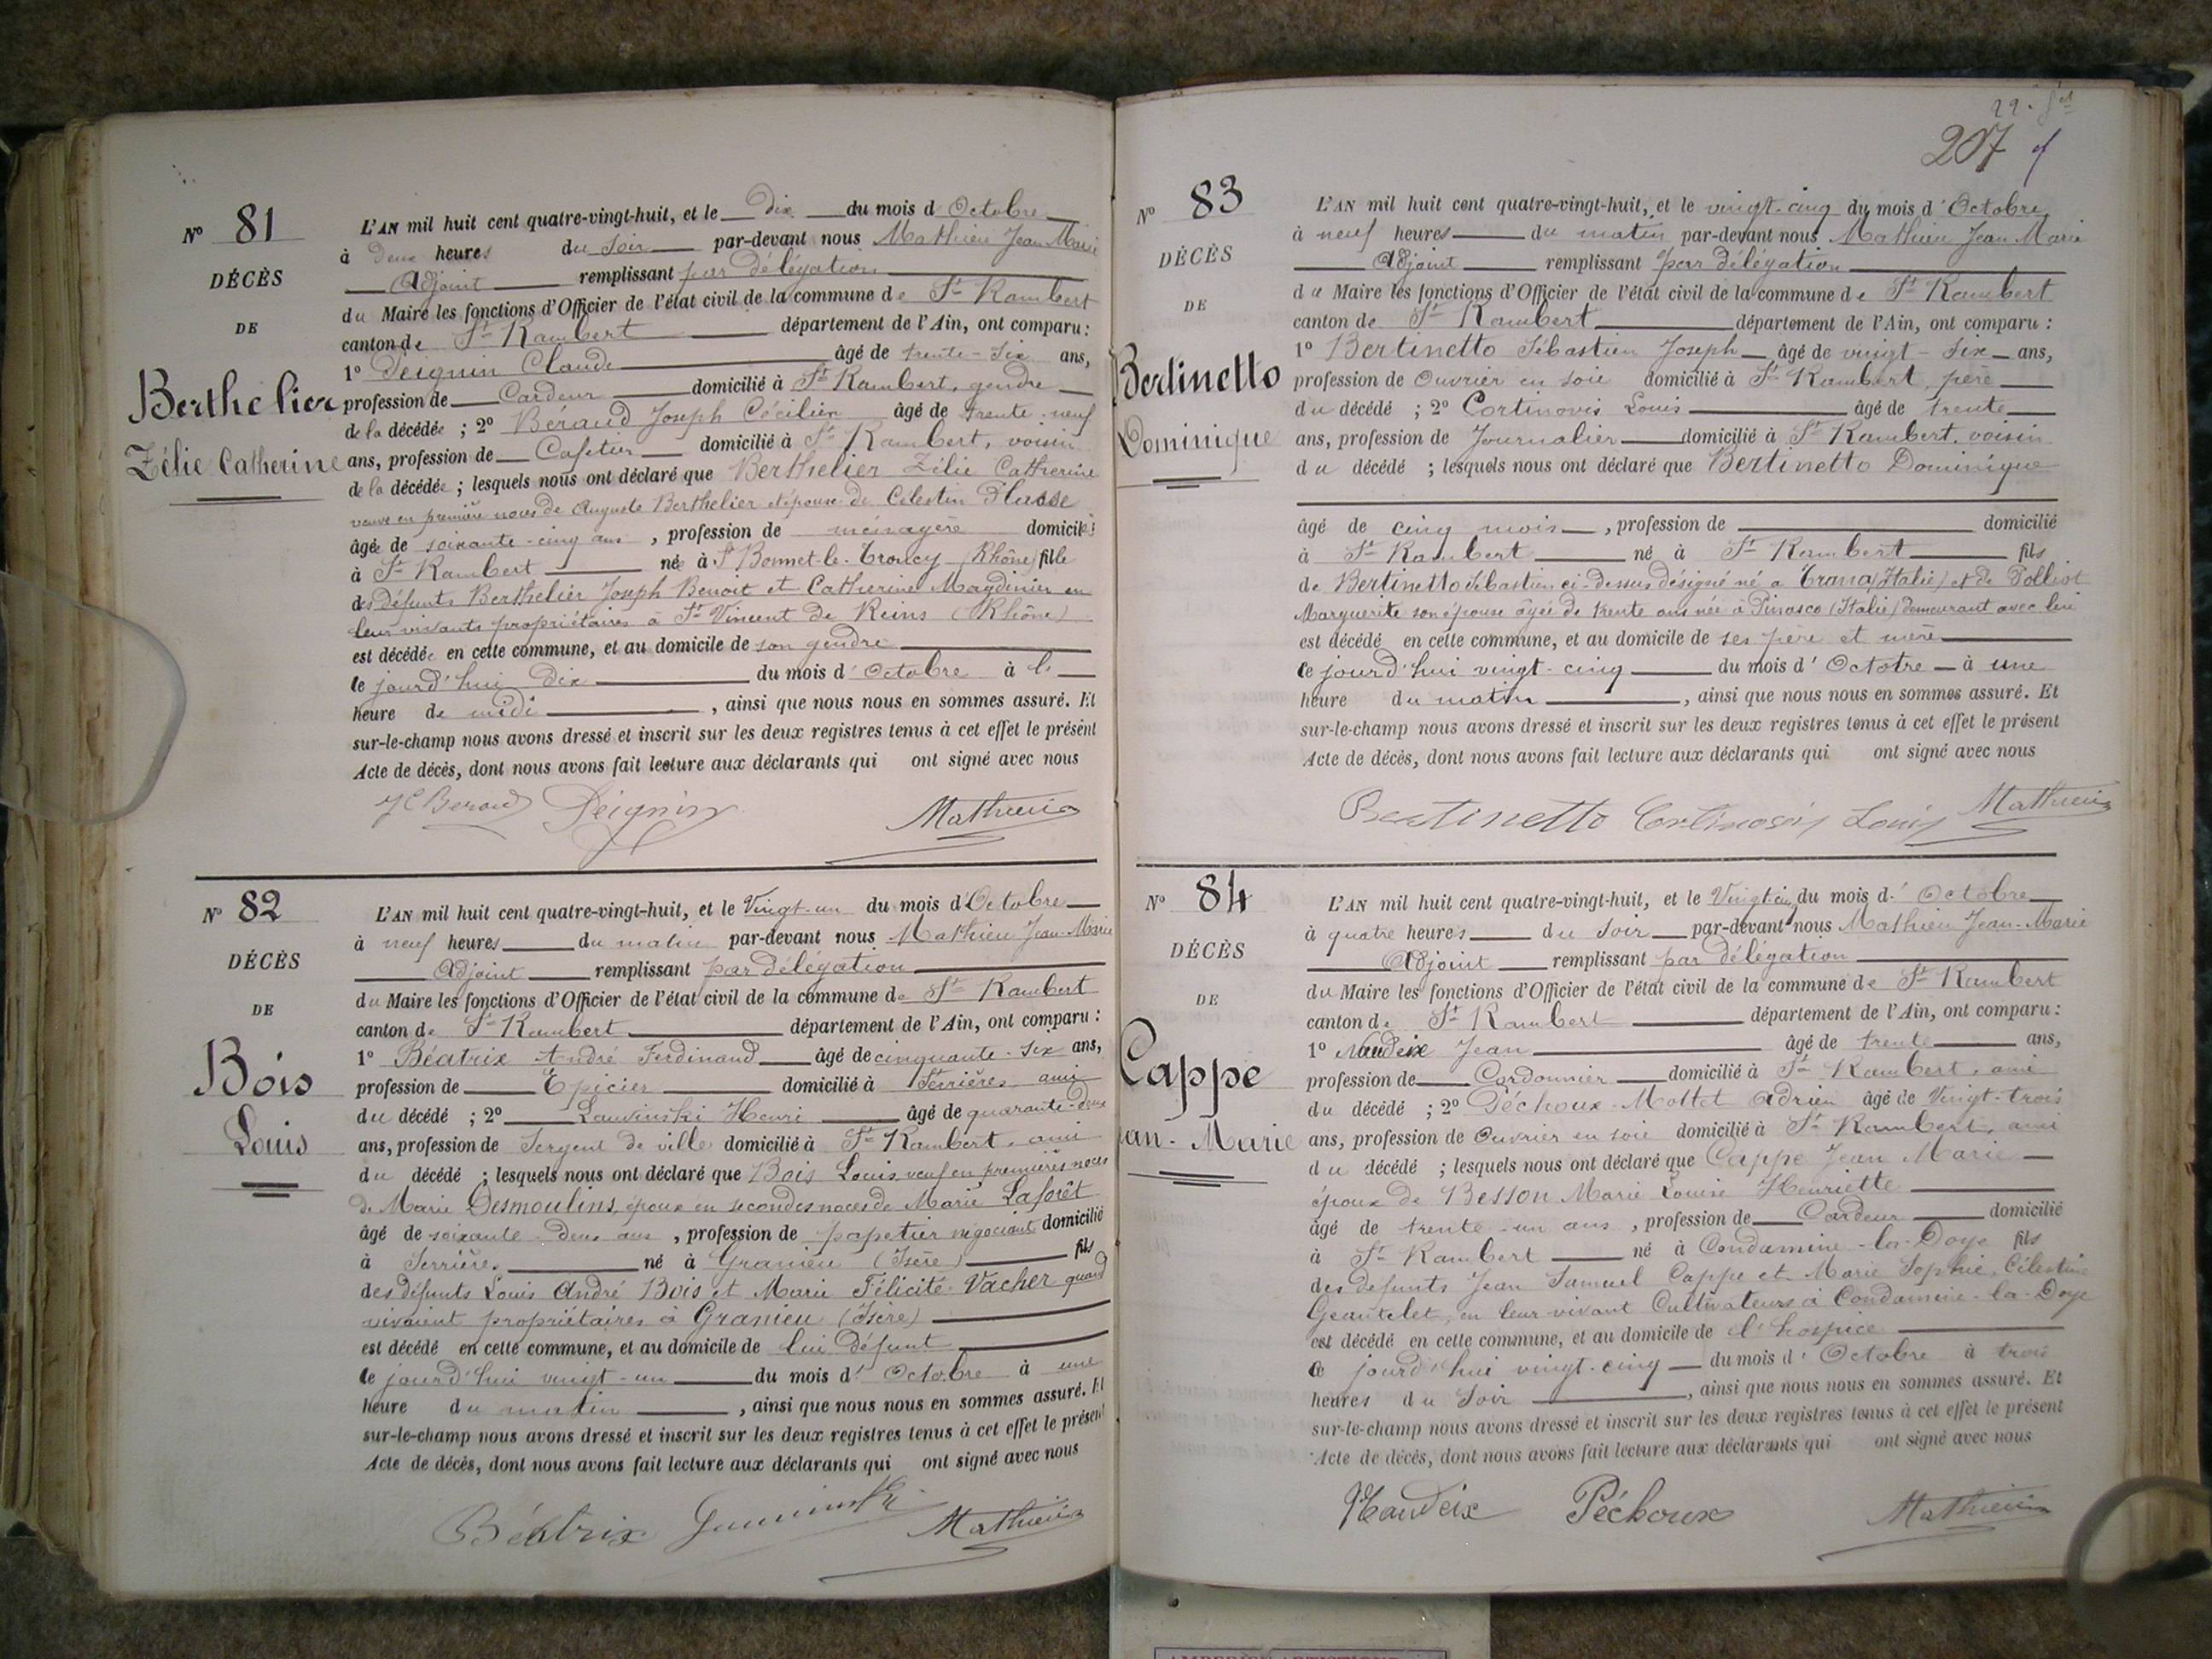 N° 81
DÉCÈS
DE
Berthelier
Zélie Catherine
L'AN mil huit cent quatre-vingt-huit, et le dix du mois d Octobre
à deux heures du soir par-devant nous Mathieu Jean Marie
Adjoint remplissant par délégation
du Maire les fonctions d'Officier de l'état civil de la commune de St Rambert
canton de St Rambert département de l'Ain, ont comparu :
1° Peignin Claude âgé de trente-six ans,
profession de Cardeur domicilié à St Rambert, gendre
de la décédée ; 2° Béraud Joseph Cécilien âgé de trente-neuf
ans, profession de Cafetier domicilié à St Rambert, voisin
de la décédée ; lesquels nous ont déclaré que Berthelier Zélie Catherine
veuve en première noces de Auguste Berthelier et épouse de Célestin Plasse
âgée de soixante-cinq ans, profession de ménagère domicilié
à St Rambert née à St Bonnet-le-Troncy (Rhône) fille
des défunts Berthelier Joseph Benoit et Catherine Magdinier en
leur vivants propriétaires à St Vincent de Reins (Rhône)
est décédée en cette commune, et au domicile de son gendre
le jourd'hui dix du mois d'Octobre à l'
heure de midi, ainsi que nous nous en sommes assuré. Et
sur-le-champ nous avons dressé et inscrit sur les deux registres tenus à cet effet le présent
Acte de décès, dont nous avons fait lecture aux déclarants qui ont signé avec nous
JC Beraud Peignin Mathieu
N° 82
DÉCÈS
DE
Bois
Louis
L'AN mil huit cent quatre-vingt-huit, et le Vingt-un du mois d'Octobre
à neuf heures du matin par-devant nous Mathieu Jean-Marie
Adjoint remplissant par délégation
du Maire les fonctions d'Officier de l'état civil de la commune de St Rambert
canton de St Rambert département de l'Ain, ont comparu :
1° Béatrix André Ferdinand âgé de cinquante-six ans,
profession de Epicier domicilié à Serrières ami
du décédé ; 2° Henri âgé de quarante-deux
ans, profession de Sergent de ville domicilié à St Rambert, ami
du décédé ; lesquels nous ont déclaré que Bois Louis veuf en premières noces
de Marie Desmoulins, époux en secondes noces de Marie Laforêt
âgé de soixante-deux ans, profession de papetier négociant domicilié
à Serrières né à Granieu (Isère) fils
des défunts Louis André Bois et Marie Félicité Vacher quand
vivaient propriétaires à Granieu (Isère)
est décédé en cette commune, et au domicile de lui défunt
le jourd'hui vingt-un du mois d'Octobre à une
heure du matin, ainsi que nous nous en sommes assuré. Et
sur-le-champ nous avons dressé et inscrit sur les deux registres tenus à cet effet le présent
Acte de décès, dont nous avons fait lecture aux déclarants qui ont signé avec nous
Béatrix Mathieu
207
N° 83
DÉCÈS
DE
Bertinetto
Dominique
L'AN mil huit cent quatre-vingt-huit, et le vingt-cinq du mois d'Octobre
à neuf heures du matin par-devant nous Mathieu Jean-Marie
Adjoint remplissant par délégation
du Maire les fonctions d'Officier de l'état civil de la commune de St Rambert
canton de St Rambert département de l'Ain, ont comparu :
1° Bertinetto Sébastien Joseph âgé de vingt-six ans,
profession de Ouvrier en soie domicilié à St Rambert, père
du décédé ; 2° Cortinovis Louis âgé de trente
ans, profession de Journalier domicilié à St Rambert, voisin
du décédé ; lesquels nous ont déclaré que Bertinetto Dominique
âgé de cinq mois, profession de domicilié
à St Rambert né à St Rambert fils
de Bertinetto Sébastien ci-dessus désigné né a Trana (Italie) et de Polliot
Marguerite son épouse âgée de trente ans née à Pinasco (Italie) demeurant avec lui
est décédé en cette commune, et au domicile de ses père et mère
le jourd'hui vingt-cinq du mois d'Octobre à une
heure du matin, ainsi que nous nous en sommes assuré. Et
sur-le-champ nous avons dressé et inscrit sur les deux registres tenus à cet effet le présent
Acte de décès, dont nous avons fait lecture aux déclarants qui ont signé avec nous
Bertinetto Cortinovis Louis Mathieu
N° 84
DÉCÈS
DE
Cappe
an-Marie
L'AN mil huit cent quatre-vingt-huit, et le Vingt cinq du mois d'Octobre
à quatre heures du soir par-devant nous Mathieu Jean-Marie
Adjoint remplissant par délégation
du Maire les fonctions d'Officier de l'état civil de la commune de St Rambert
canton de St Rambert département de l'Ain, ont comparu :
1° Naudeix Jean âgé de trente ans,
profession de Cordonnier domicilié à St Rambert, ami
du décédé ; 2° Péchoux-Mottet Adrien âgé de Vingt-trois
ans, profession de Ouvrier en soie domicilié à St Rambert, ami
du décédé ; lesquels nous ont déclaré que Cappe Jean Marie
époux de Besson Marie Louise Henriette
âgé de trente-un ans, profession de Cardeur domicilié
à St Rambert né à Condamine-la-Doye fils
des défunts Jean Samuel Cappe et Marie Sophie, Célestine
en leur vivant Cultivateurs à Condamine-la-Doye
est décédé en cette commune, et au domicile de l'hospice
ce jourd'hui vingt-cinq du mois d'Octobre à trois
heures du soir, ainsi que nous nous en sommes assuré. Et
sur-le-champ nous avons dressé et inscrit sur les deux registres tenus à cet effet le présent
Acte de décès, dont nous avons fait lecture aux déclarants qui ont signé avec nous
Naudeix Péchoux Mathieu